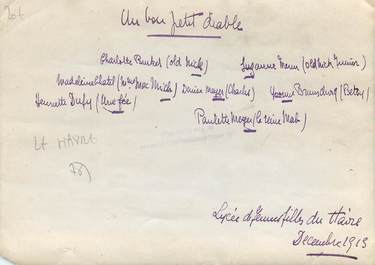 Lot
Un bon petit diable
Charlotte Bunkel (old Nick) Suzanne Menn (old Nick Junior)
Madeleine Chatel (Mme Mac Mich) Denise Meyer (Charles) Yvonne (Betsy)
Henriette Dufy (Une fée)
Paulette Meyer (la reine Mab)
LE HAVRE
Lycée de jeunes filles du Havre
Décembre 1913